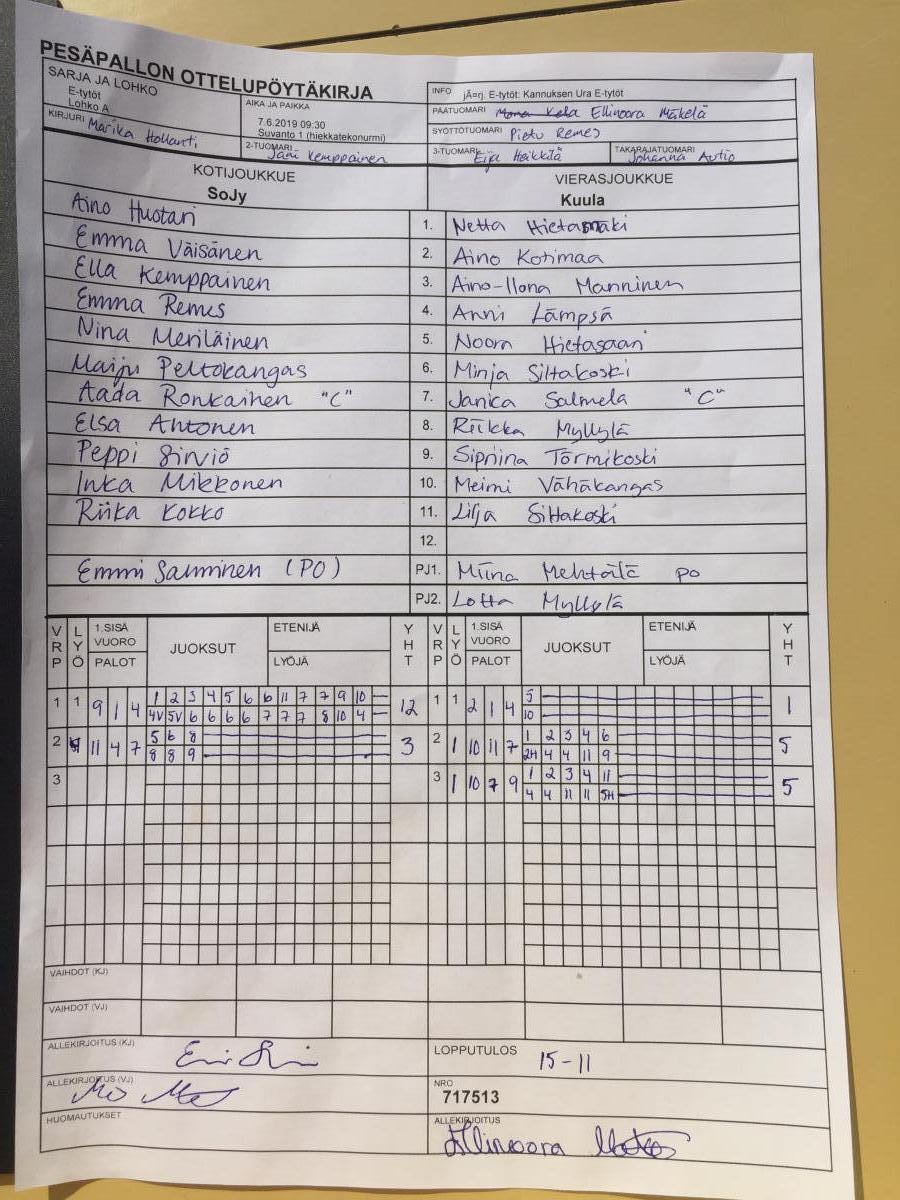 PESÄPALLON OTTELUPÖYTÄKIRJA
SARJA JA LOHKO
E-tytöt
Lohko A
AIKA JA PAIKKA
7.6.2019 09:30
Suvanto 1 (hiekkatekonurmi)
KIRJURI Marika Hollanti
2-TUOMARI Jani Kemppainen
INFO jÃ¤rj. E-tytöt: Kannuksen Ura E-tytöt
PÄÄTUOMARI Mona Kela Ellinoora Mäkelä
SYÖTTÖTUOMARI Pietu Remes
3-TUOMARI Eija Heikkilä
TAKARAJATUOMARI Johanna Autio
KOTIJOUKKUE
SoJy
VIERASJOUKKUE
Kuula
Aino Huotari 1. Netta Hietamäki
Emma Väisänen 2. Aino Kotimaa
Ella Kemppainen 3. Aino-Ilona Manninen
Emma Remes 4. Anni Lämpsä
Nina Meriläinen 5. Noora Hietasaari
Maiju Peltokangas 6. Minja Siltakoski
Aada Ronkainen "C" 7. Janica Salmela "C"
Elsa Ahtonen 8. Riikka Myllylä
Peppi Sirviö 9. Sipriina Törmikoski
Inka Mikkonen 10. Meimi Vähäkangas
Riika Kokko 11. Lilja Siltakoski
12.
Emmi Sauminen (PO) PJ1. Miina Mehtälä PO
PJ2. Lotta Myllylä
VRP LYÖ 1.SISÄ VUORO PALOT JUOKSUT ETENIJÄ LYÖJÄ YHT VRP LYÖ 1.SISÄ VUORO PALOT JUOKSUT ETENIJÄ LYÖJÄ YHT
1 1 9 1 4 1 2 3 4 5 6 6 11 7 7 9 10 12 1 1 2 1 4 5 1
4V 5V 6 6 6 6 7 7 7 8 10 4 10
2 11 4 7 5 6 8 3 2 1 10 11 7 1 2 3 4 6 5
8 8 9 2H 4 4 11 9
3 3 1 10 7 9 1 2 3 4 11 5
4 4 11 11 5H
VAIHDOT (KJ)
VAIHDOT (VJ)
ALLEKIRJOITUS (KJ)
LOPPUTULOS 15-11
ALLEKIRJOITUS (VJ)
NRO
717513
HUOMAUTUKSET
ALLEKIRJOITUS
Ellinoora